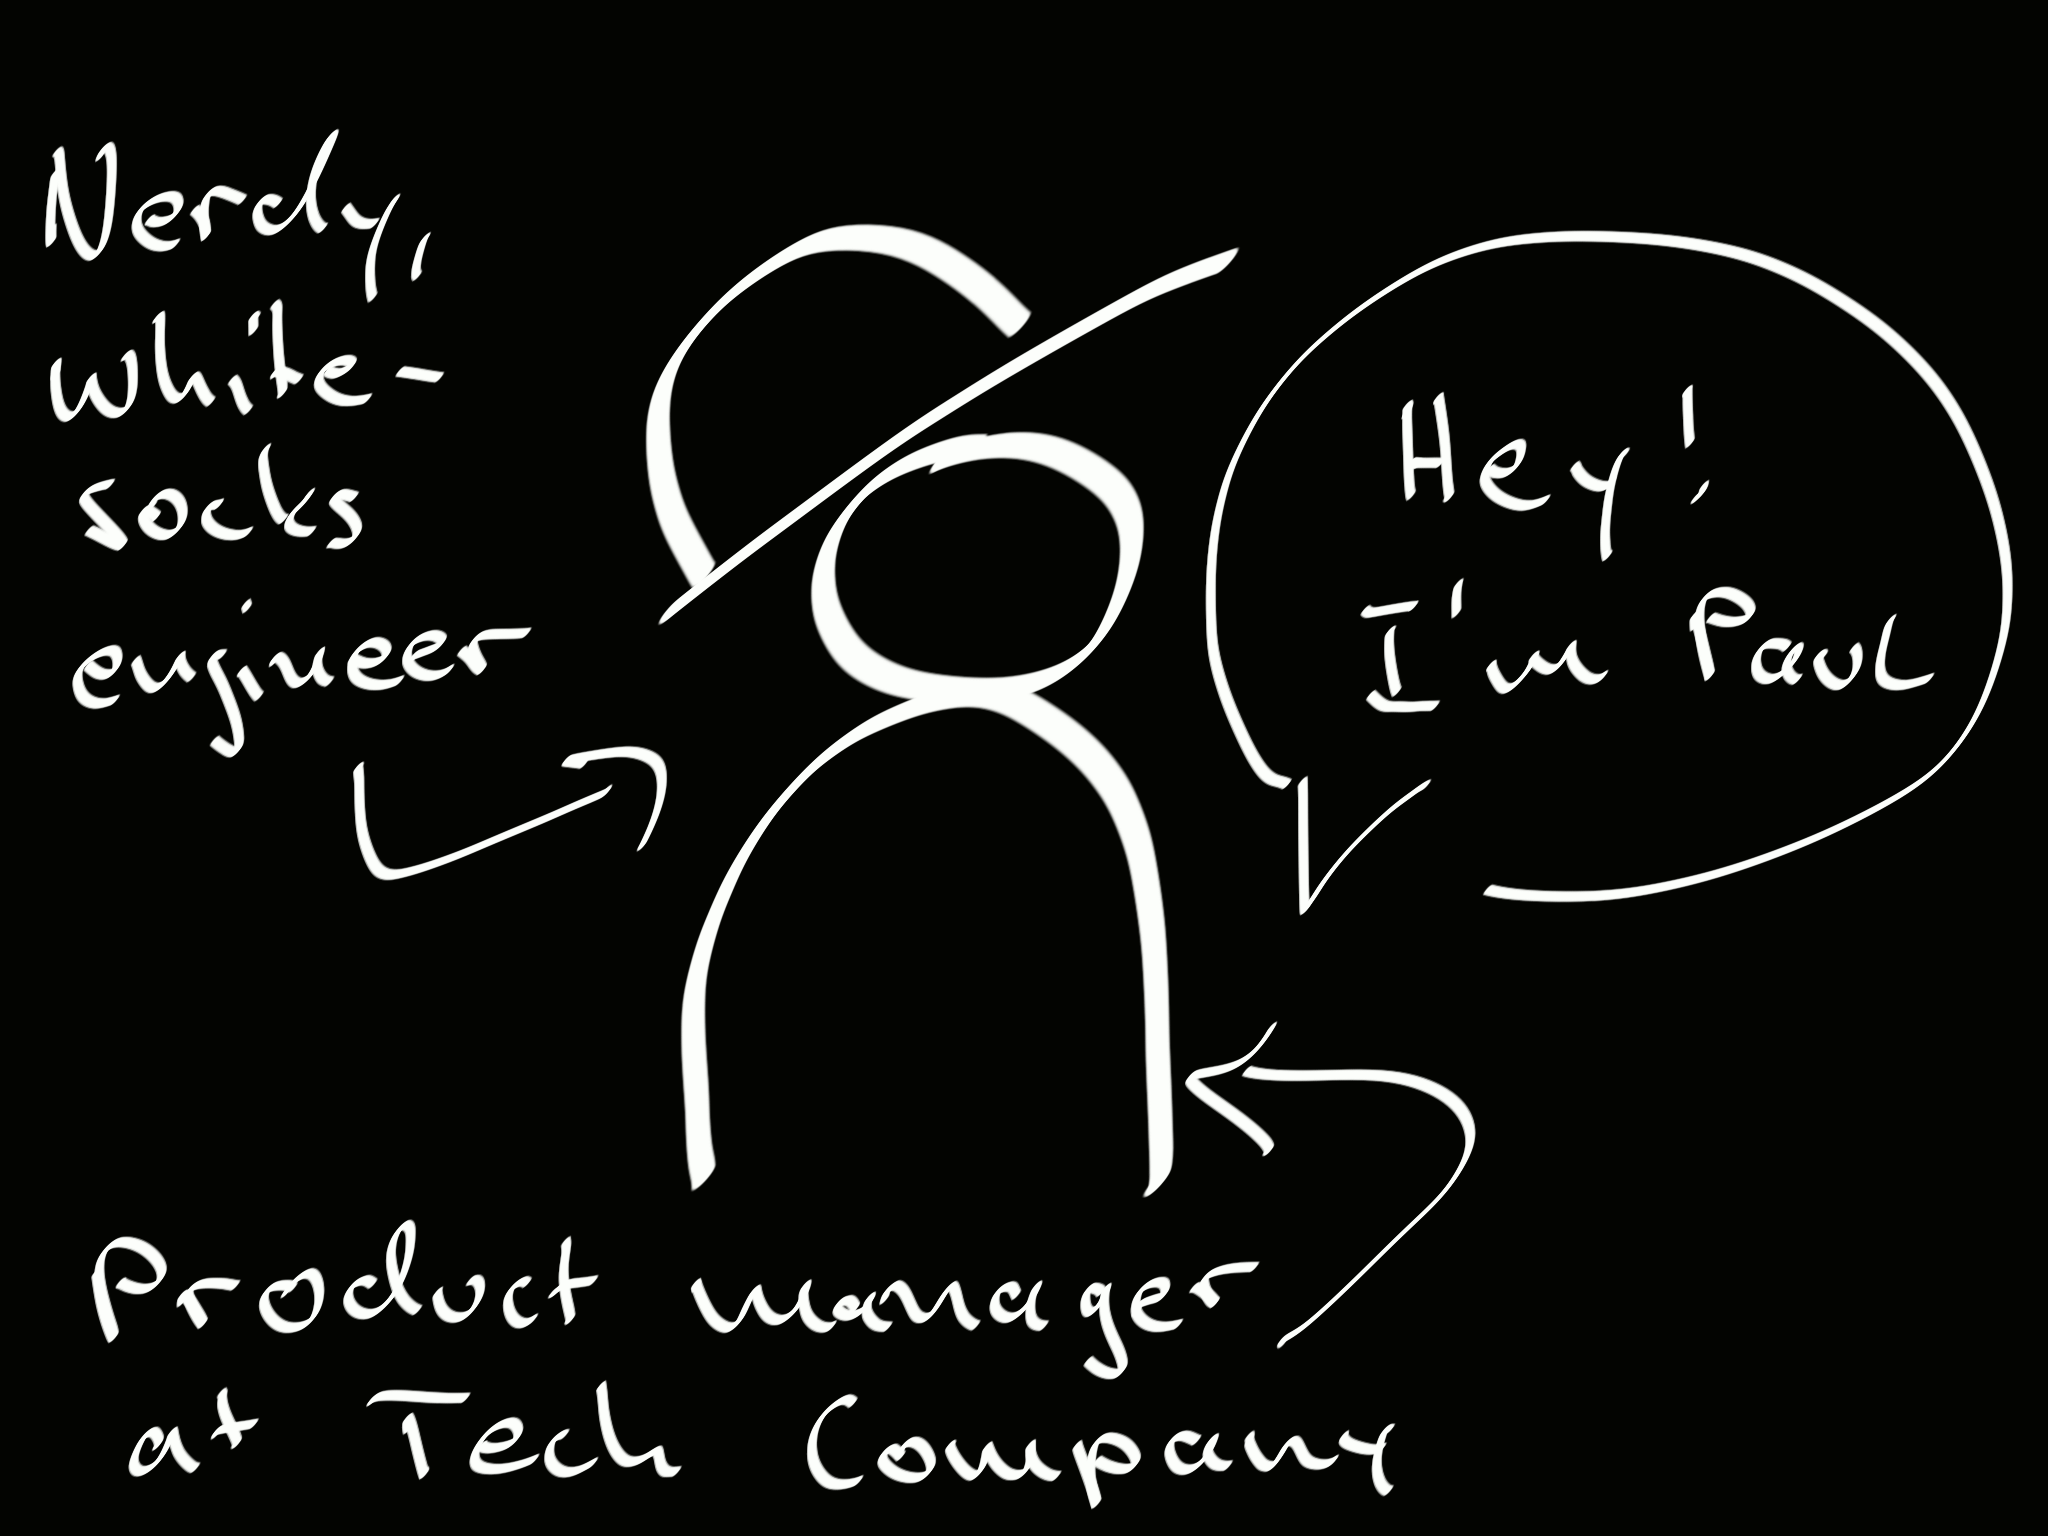 Nerdy,
white-
socks
engineer
Hey!
I'm Paul
Product manager
at Tech Company